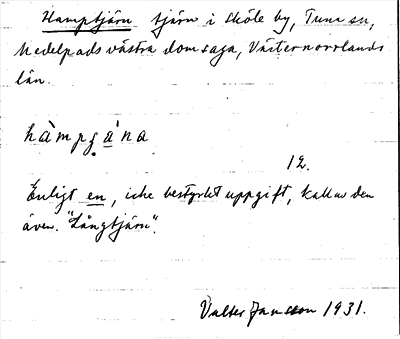 Hamptjärn tjärn i Sköle by, Tuna sn,
Medelpads västra domsaga, Västernorrlands
län.
hàmpgạ̈na
12.
Enligt en, icke bestyrkt uppgift, kallas den
även "Långtjärn".
Valter Jansson 1931.